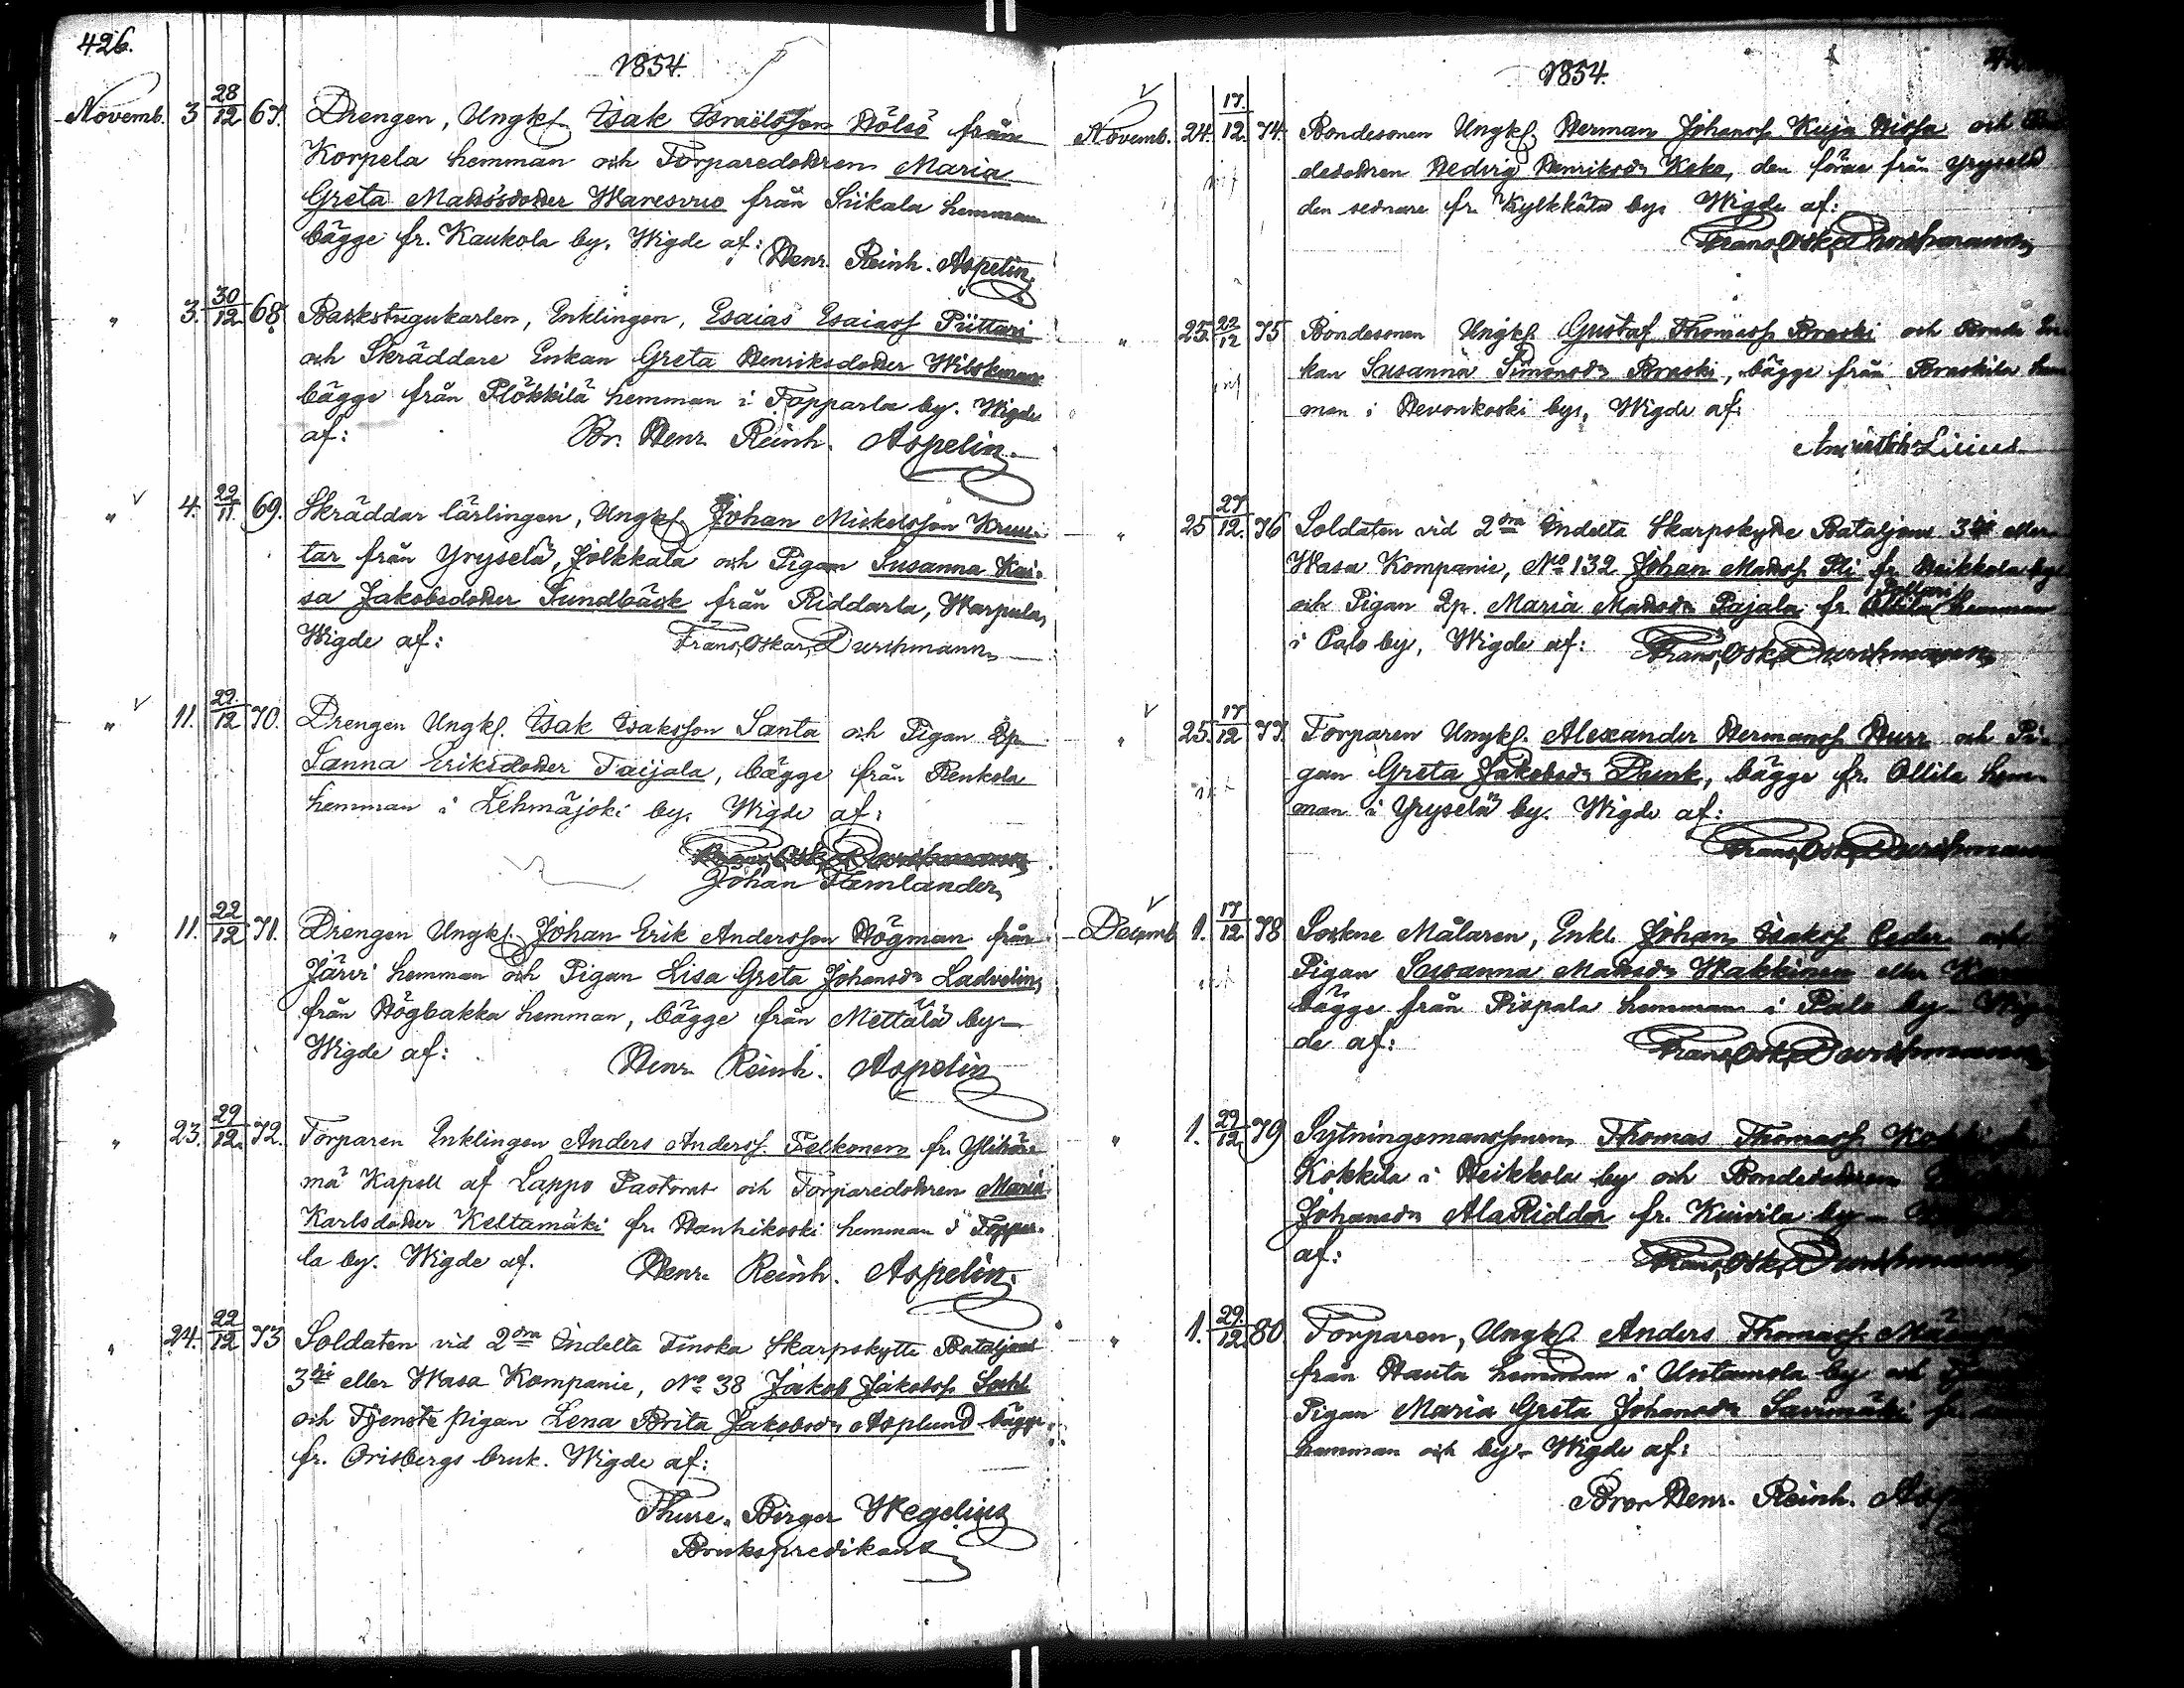 426.
1854.
Novemb. 3 28/12 67. Drengen, Ungkf. Isak Israelsson Hölsö från
Korpela hemman och Torparedottren Maria
Greta Mattsdotter Waresvuo från Siikala hemman
bägge fr. Kaukola by. Wigde af:
Henr. Reinh. Aspelin.
" 3. 30/12 68. Backstugukarlen, Enklingen, Esaias Esaiasf. Püttari
och Skräddare Enkan Greta Henriksdotter Wilskman
bägge från Plökkilä hemman i Topparla by. Wigde
af: Br. Henr. Reinh. Aspelin.
" 4. 22/11. 69. Skräddar lärlingen, Ungkf. Johan Mickelsson Kruu-
tar från Yryselä, Jolkkala och Pigan Susanna Kai-
sa Jakobsdotter Sundbäck från Riddarla, Warpula,
Wigde af: Frans Oskar Durchmann
" 11. 22./12 70. Drengen Ungkf. Isak Isaksson Santa och Pigan Qp.
Sanna Eriksdotter Taijala, bägge från Renkola
hemman i Lehmäjoki by. Wigde af:
Johan Hemlander,
" 11. 22/12 71. Drengen Ungkf. Johan Erik Andersson Högman från
Järvi hemman och Pigan Lisa Greta Johansdr Ladvelin,
från Högbakka hemman, bägge från Mettälä by
Wigde af: Henr. Reinh. Aspelin
" 23. 29/12. 72. Torparen Enklingen Anders Andersf. Felkonen fr. Ylihär-
mä Kapell af Lappo Pastorat och Torparedottren Maria
Karlsdotter Keltamäki fr. Hanhikoski hemman i Toppar-
la by. Wigde af. Henr. Reinh. Aspelin.
" 24. 22/12 73 Soldaten vid 2dra Indelta Finska Skarpskytte Bataljons
3dje eller Wasa Kompanie, No 38 Jakob Jakobsf.
och Tjenste pigan Lena Brita Jakobsdr Asplund bägge
fr. Orisbergs bruk. Wigde af:
Thure Birger Wegelius
Brukspredikant
1854.
Novemb. 24. 17./12. 74. Bondesonen Ungkf. Herman Johansf. Kuja Hissa och
dedottren Hedvig Henriksdr Keko, den förre från Yryselä
den sednare fr. Kylkkälä by. Wigde af:
Frans Osk. Durchmann
" 25. 22/12 75 Bondesonen Ungkf. Gustaf Thomasf. Braski och Bonde En-
kan Susanna Simonsdr Braski, bägge från Braskila hem-
man i Hevonkoski by, Wigde af:
" 25 27/12. 76 Soldaten vid 2dra Indelta Skarpskytte Bataljons 3dje eller
Wasa Kompanie, No 132 Johan Mattsf. Pli fr. Heikkola by
och Pigan Qp. Maria Mattsdr Pajala fr. Pollari hemman
i Palo by, Wigde af: Frans Osk. Durchmann
" 25. 17/12 77. Torparen Ungkf. Alexander Hermansf. Hurr och Pi-
gan Greta Jakobsdr Dunk, bägge fr. Ollila hem-
man i Yryselä by. Wigde af:
Frans Osk. Durchmann
Decemb. 1. 17/12 78 Sockne Målaren, Enkl. Johan Isaksf. Ceder och
Pigan Susanna Mattsdr Wakkinen eller
bägge från Pispala hemman i Palo by Wig-
de af: Frans Osk. Durchmann
" 1. 29/12 79 Sytningsmanssonen Thomas Thomasf.
Kokkila i Heikkola by och Bondedottren
Johansdr AlaRiddar fr. Kuivila by
af: Frans Osk. Durchmann
" 1. 29./12. 80 Torparen, Ungkf. Anders Thomasf.
från Hauta hemman i by och
Pigan Maria Greta Johansdr Savimäki fr.
hemman och by. Wigde af:
Bror Henr. Reinh.